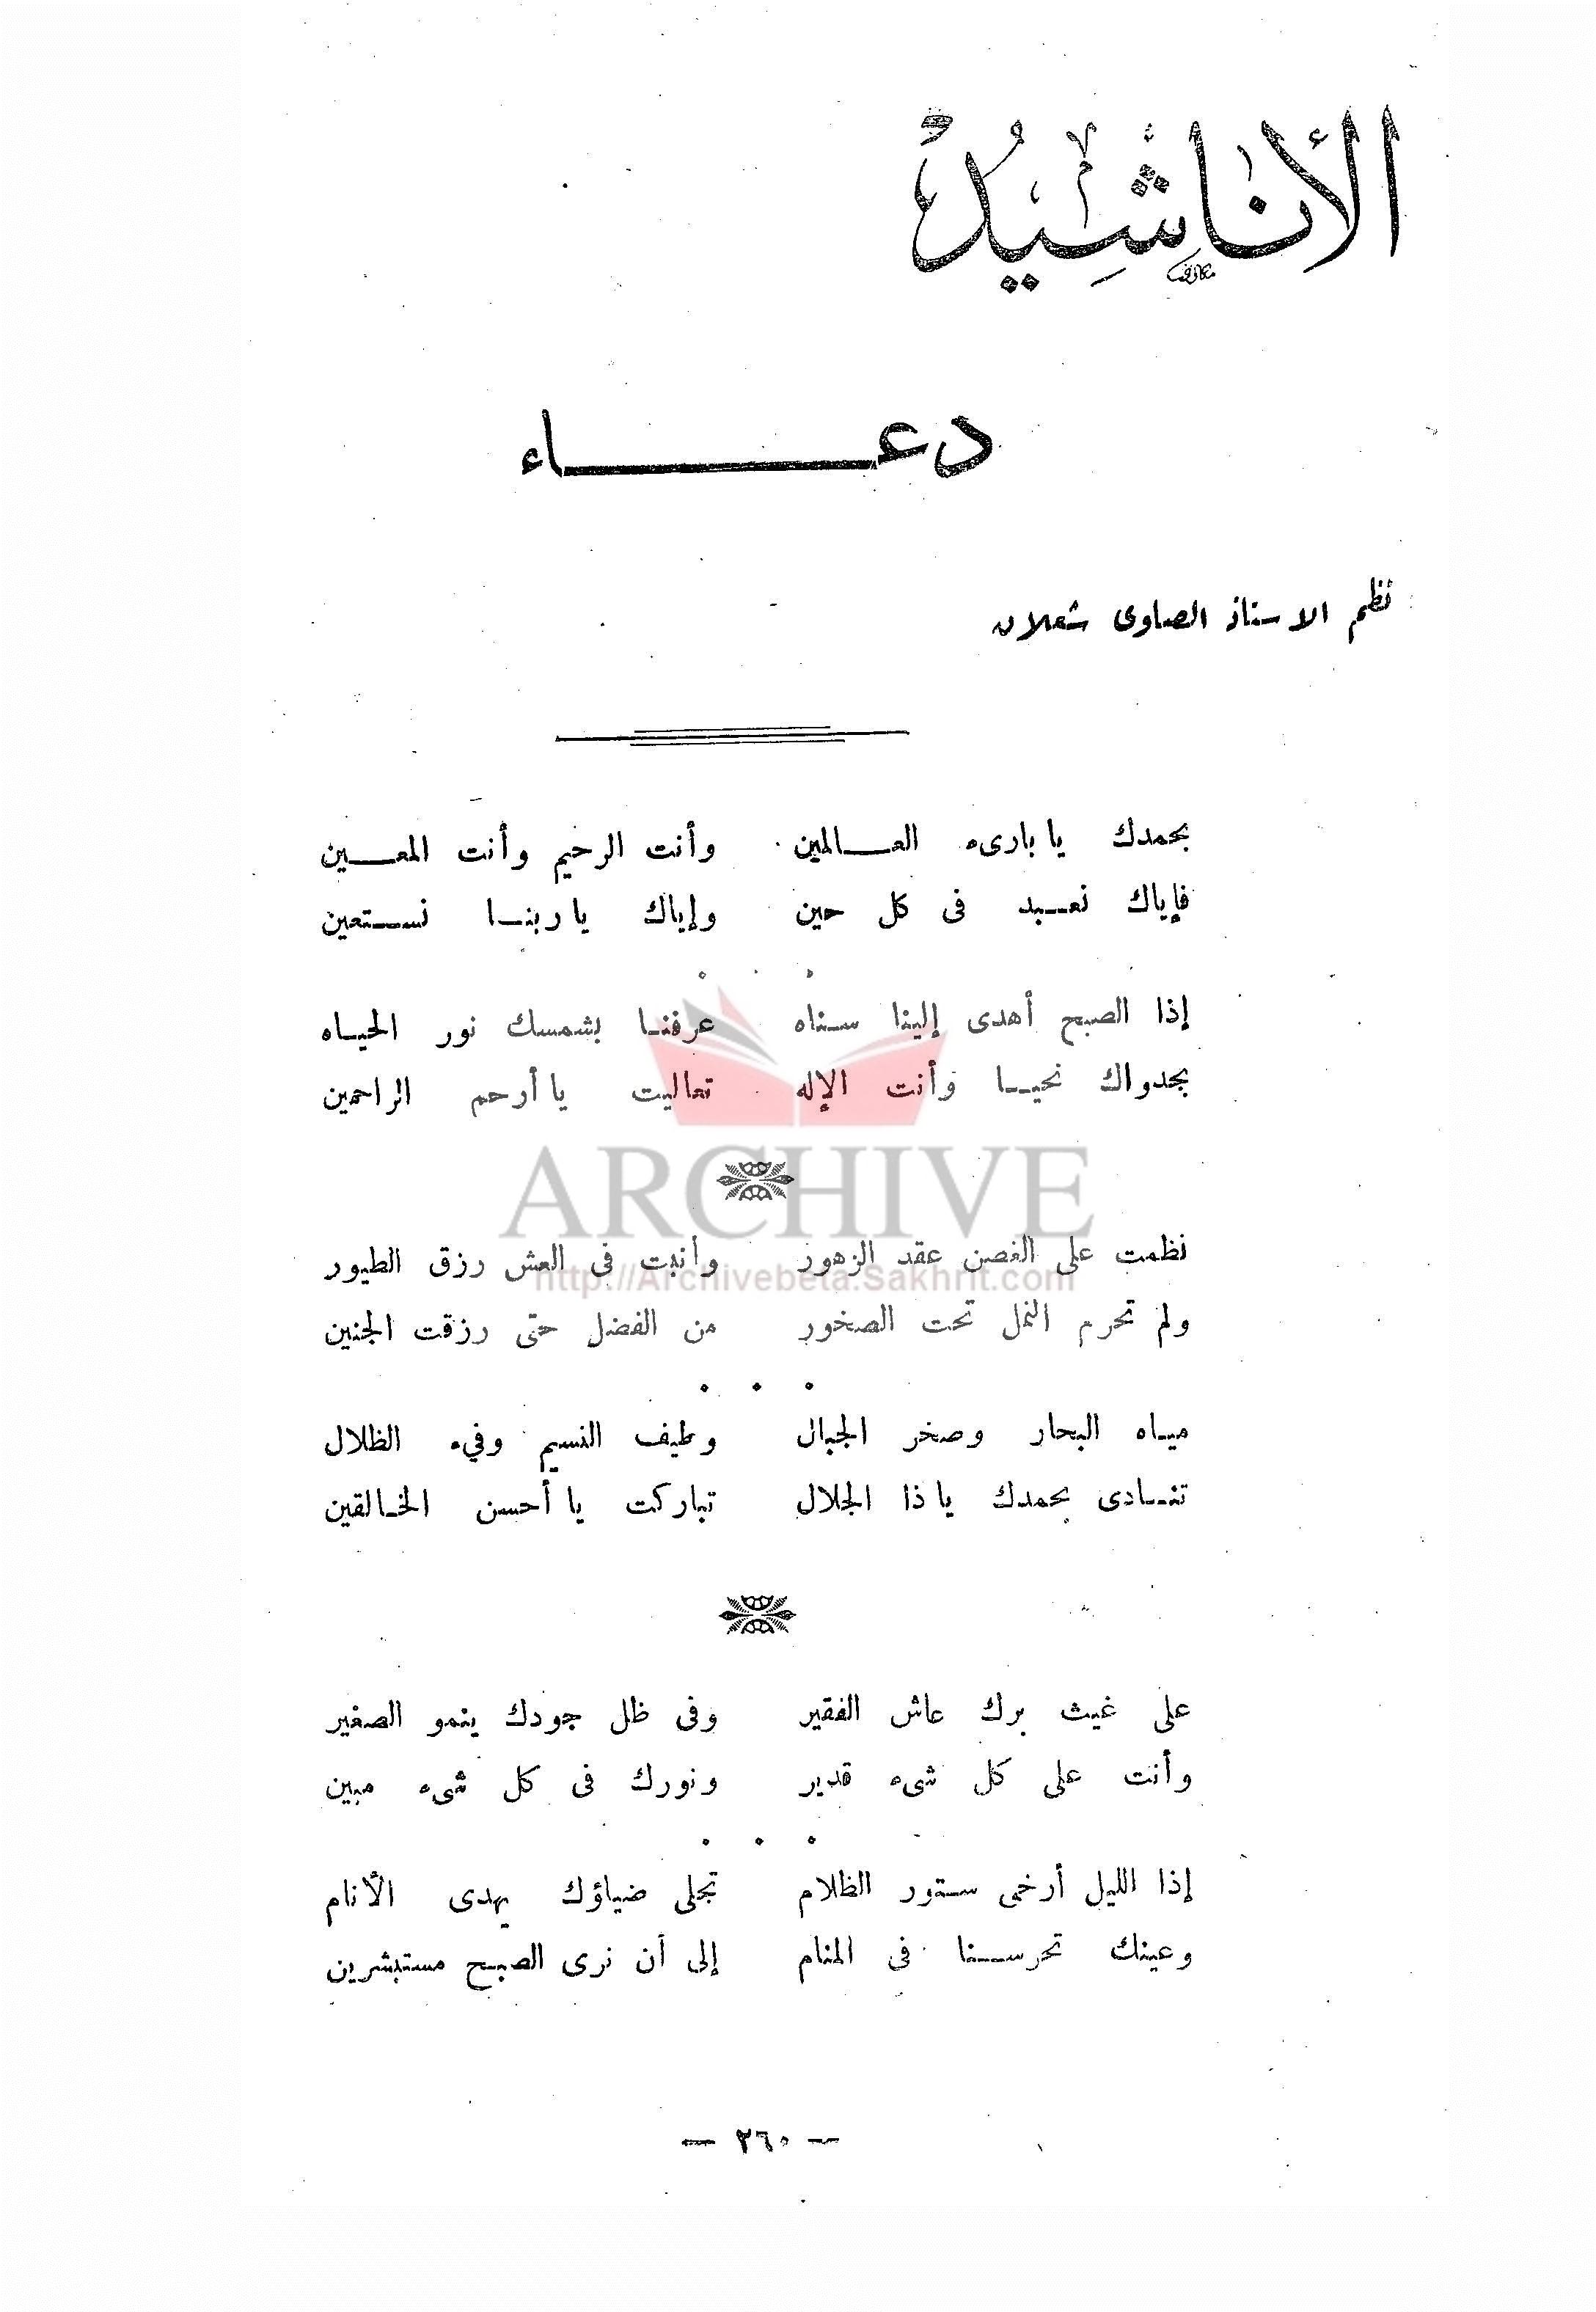 الأناشيد
دعاء
نظم الاستاذ الصاوى شعلان
بحمدك يا بارىء العالمين وأنت الرحيم وأنت المعين
فإياك نعبد فى كل حين وإياك ياربنا نستعين
إذا الصبح أهدى إلينا سناه عرفنا بشمسك نور الحياه
بجدواك نحيا وأنت الإله تعاليت يا أرحم الراحمين
ARCHIVE
نظمت على الغصن عقد الزهور وأنبت فى العش رزق الطيور
http://Archivebeta.Sakhrit.com
ولم تحرم النمل تحت الصخور من الفضل حتى رزقت الجنين
مياه البحار وصخر الجبال وطيف النسيم وفىء الظلال
تنادى بحمدك ياذا الجلال تباركت يا أحسن الخالقين
على غيث برك عاش الفقير وفى ظل جودك ينمو الصغير
وأنت على كل شىء قدير ونورك فى كل شىء مبين
إذا الليل أرخى ستور الظلام تجلى ضياؤك يهدى الأنام
وعينك تحرسنا فى المنام إلى أن نرى الصبح مستبشرين
— ٢٦٠ —